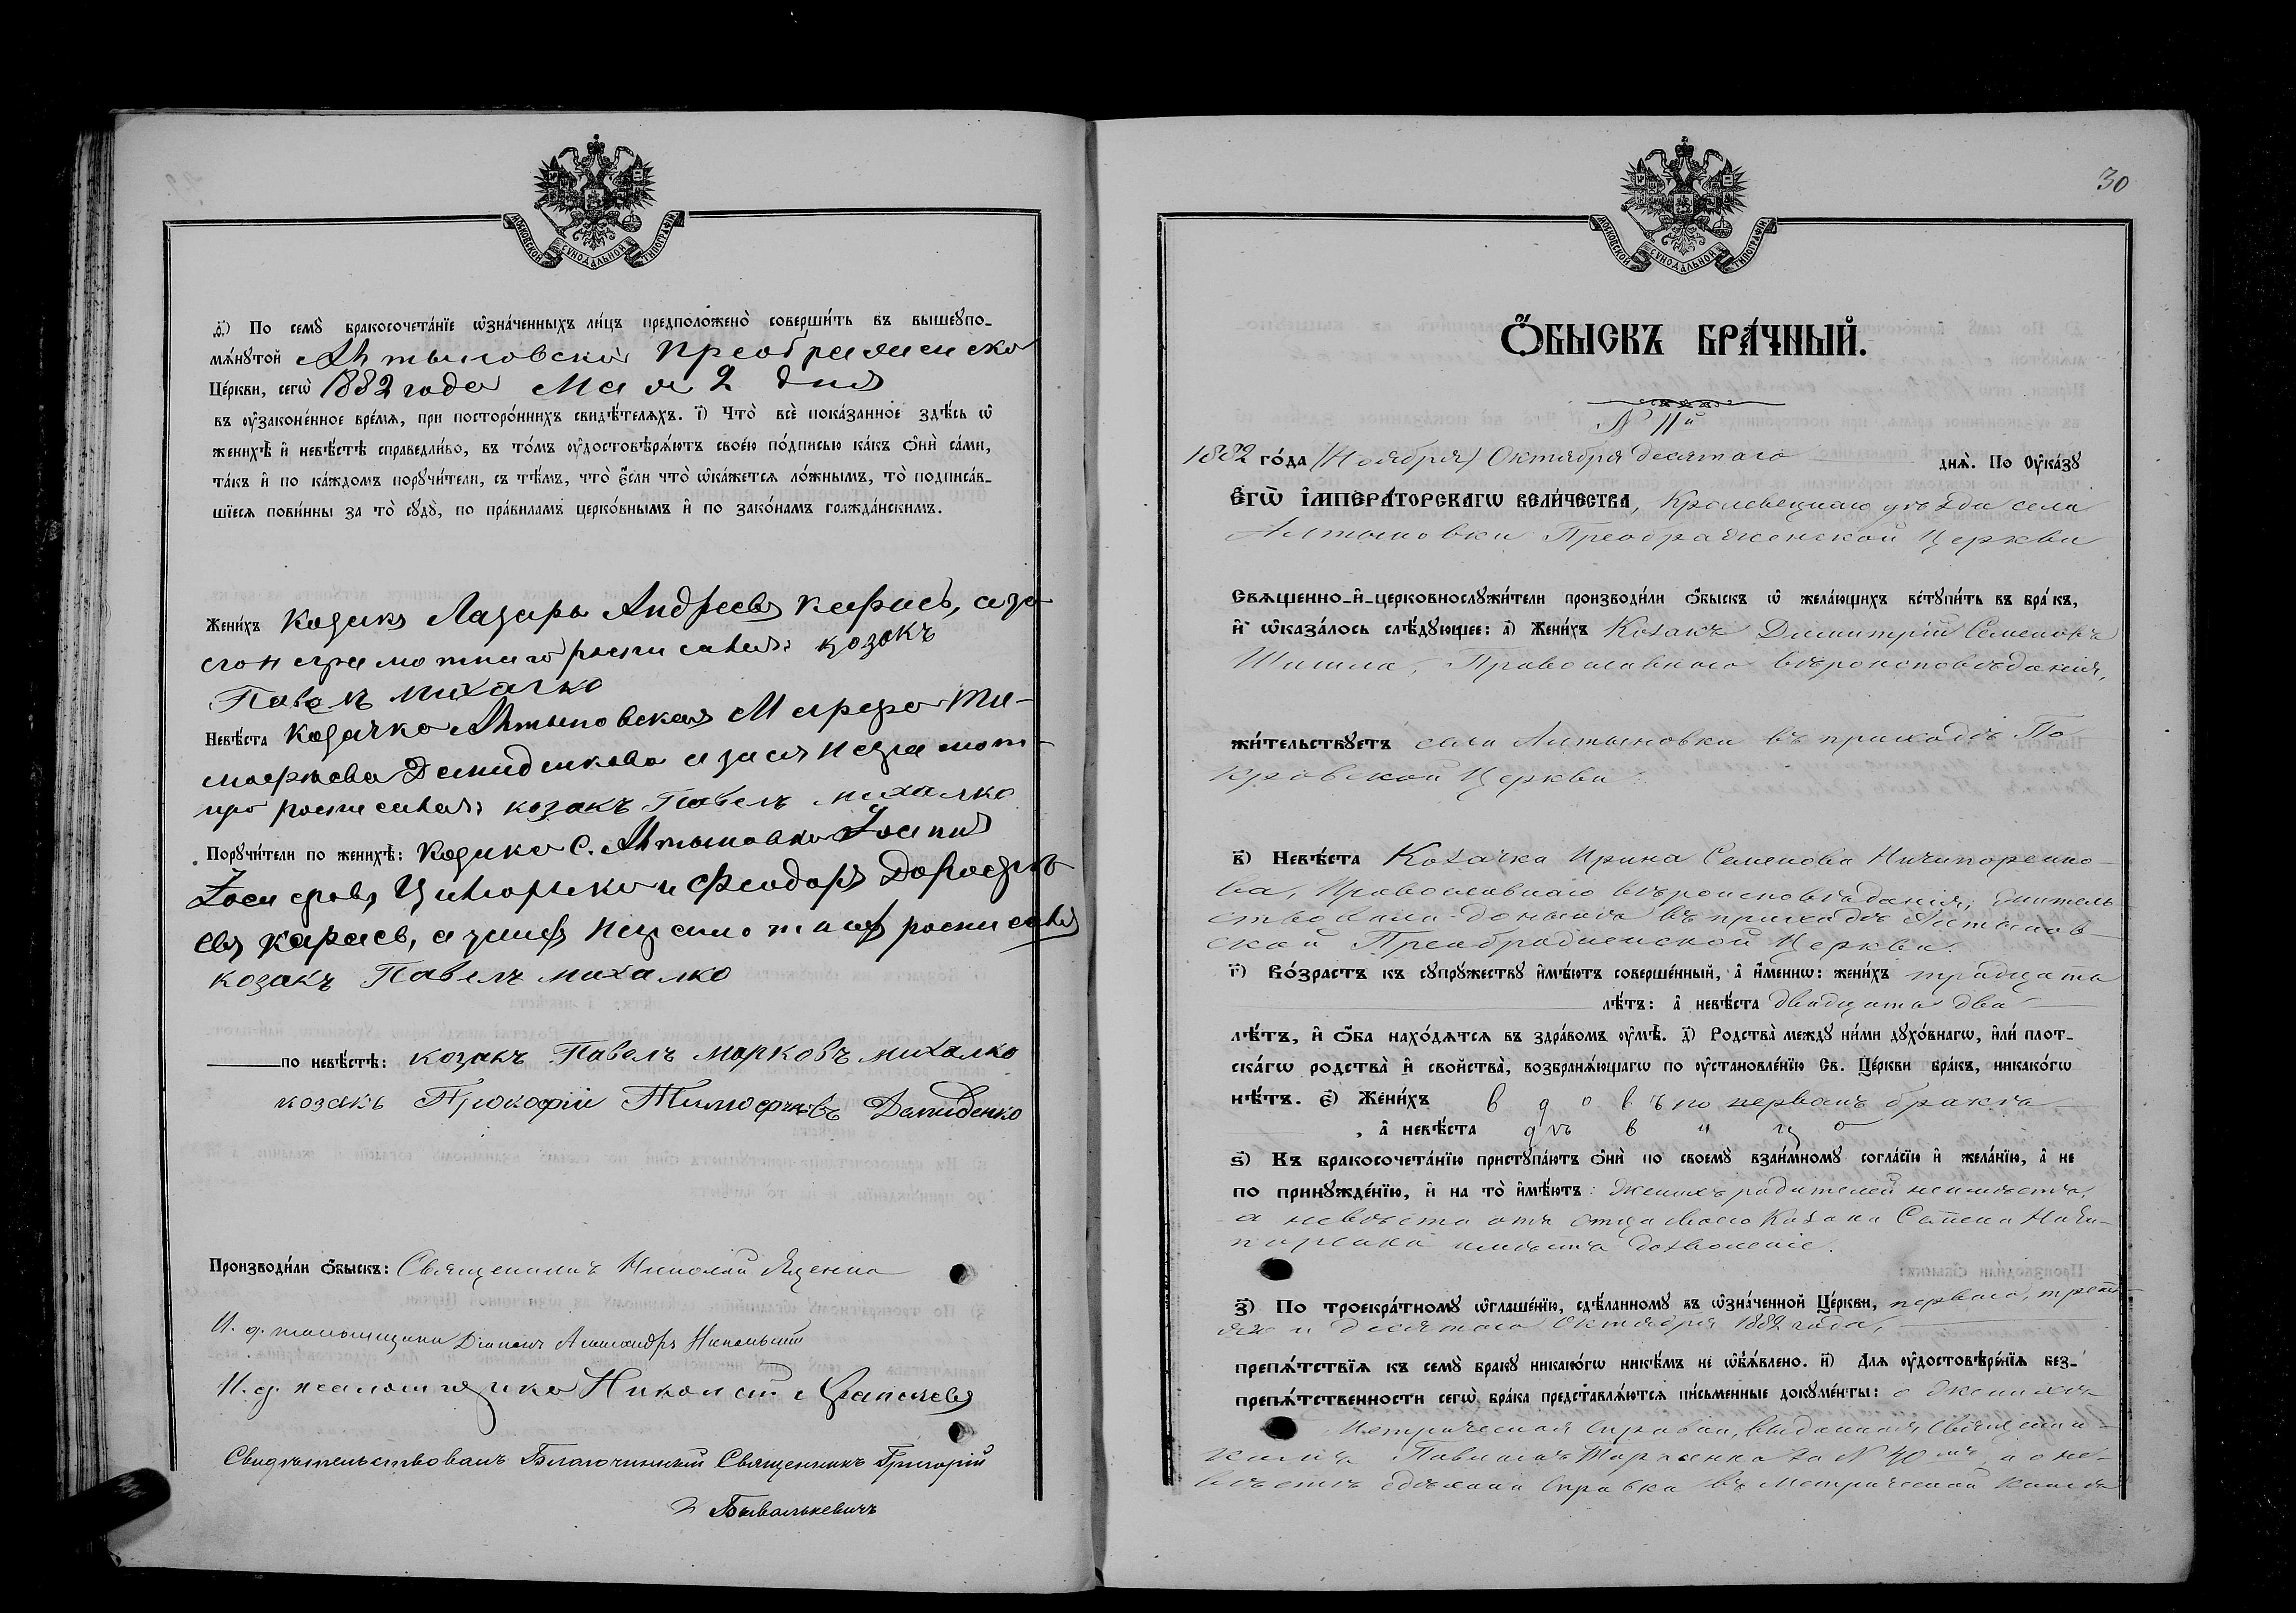 МОСКОВСКОЙ СУНОДАЛЬНОЙ ТИПОГРАФІИ
д҃) По семꙋ̀ бракосочета́нїе ѡ҆зна́ченныхъ ли́цъ предположено̀ соверши́ть въ вышеꙋпо-
мѧ́нꙋтой Алтыновской Преображенско
Це́ркви, сегѡ̀ 1882 года Мая 2 дня
въ ᲂу҆зако́ненное вре́мѧ, при посторо́ннихъ свидѣ́телѧхъ. і҃) Что̀ всѐ пока́занное здѣ́сь ѡ҆
женихѣ̀ и҆ невѣ́стѣ справедли́во, въ то́мъ ᲂу҆достовѣрѧ́ютъ свое́ю по́дписью ка́къ ѻ҆нѝ са́ми,
та́къ и҆ по ка́ждомъ порꙋчи́тели, съ тѣ́мъ, что̀ є҆́сли что̀ ѡ҆ка́жетсѧ ло́жнымъ, то̀ подписа́в-
шїесѧ пови́нны за то̀ сꙋдꙋ̀, по пра́виламъ церко́внымъ и҆ по зако́намъ гражда́нскимъ.
Жени́хъ Козакъ Лазарь Андреевъ Карась, а за
его неграмотнаго росписался козакъ
Павелъ Михалко
Невѣ́ста Козачка Алтыновская Марфа Ти-
мофѣева Демиденкова а за ея неграмот-
ную росписался козакъ Павелъ Михалко
Порꙋчи́тели по женихѣ̀: Козаки С. Алтыновки Іосипъ
Іосифовъ и Феодоръ
евъ Карась, а за их неграмотных росписался
козакъ Павелъ Михалко
по невѣ́стѣ: козакъ Павелъ Марковъ Михалко
козакъ Прокофій Тимофѣевъ Демиденко
Производи́ли ѻ҆́быскъ: Священникъ Николай Яценко
И. д. псаломщика Діаконъ Александръ Никольскій
И. д. псаломщика Николай
Свидѣтельствовалъ Благочинный Священникъ Григорій
Бывалькевичъ
30
МОСКОВСКОЙ СУНОДАЛЬНОЙ ТИПОГРАФІИ
Ѻ҆́БЫСКЪ БРА́ЧНЫЙ.
№ 11й
1882 го́да (Ноября) Октября десятаго днѧ̀. По Оу҆ка́зꙋ
Є҆гѡ̀ І҆мпера́торскагѡ вели́чества, Кролевецкаго уѣзда села
Алтыновки Преображенской Церкви
Свѧщенно-и҆-церковнослꙋжи́тели производи́ли ѻ҆́быскъ ѡ҆ жела́ющихъ встꙋпи́ть въ бра́къ,
и҆ ѡ҆каза́лось слѣ́дꙋющее: а҃) Жени́хъ Козакъ Димитрій Семеновъ
Шишла, Православнаго вѣроисповѣданія,
жи́тельствꙋетъ села Алтыновки въ приходѣ По
кровской Церкви.
в҃) Невѣ́ста Козачка Ирина Семенова Ничипоренко-
ва, Православнаго вѣроисповѣданія, житель-
ствовала донынѣ въ приходѣ Алтынов-
ской Преображенской Церкви.
г҃) Во́зрастъ къ сꙋпрꙋ́жествꙋ и҆мѣ́ютъ соверше́нный, а҆ и҆́менно: жени́хъ тридцать
лѣ́тъ: а҆ невѣ́ста двадцать два
лѣ́тъ, и҆ ѻ҆́ба нахо́дѧтсѧ въ здра́вомъ ᲂу҆мѣ̀. д҃) Родства̀ междꙋ ни́ми дꙋхо́внагѡ, и҆лѝ плот-
ска́гѡ родства̀ и҆ свойства̀, возбранѧ́ющагѡ по ᲂу҆становле́нїю Св. Це́ркви бра́къ, никако́гѡ
нѣ́тъ. є҃) Жени́хъ вдовъ по первомъ бракѣ
, а҆ невѣ́ста дѣвица
ѕ҃) Къ бракосочета́нїю пристꙋпа́ютъ ѻ҆нѝ по своемꙋ̀ взаи́мномꙋ согла́сїю и҆ жела́нїю, а҆ не
по принꙋжде́нїю, и҆ на то̀ и҆мѣ́ютъ: женихъ родителей не имѣетъ,
а невѣста отъ отца своего Козака Семена Ничи-
поренка имѣетъ дозволеніе.
Ꙁ҃) По троекра́тномꙋ ѡ҆глаше́нїю, сдѣ́ланномꙋ въ ѡ҆зна́ченной Це́ркви, перваго, треть-
яго и десятаго Октября 1882 года,
препѧ́тствїѧ къ семꙋ̀ бракꙋ никако́гѡ никѣ́мъ не ѡ҆б̾ѧ́влено. и҃) Длѧ ᲂу҆достовѣре́нїѧ без-
препѧ́тственности сегѡ̀ бра́ка представлѧ́ютсѧ пи́сьменные докꙋме́нты: о женихѣ
Метрическая справка, выданная Священни-
комъ Павломъ за № 40мъ, а о не-
вѣстѣ сдѣлана справка въ метрической книгѣ